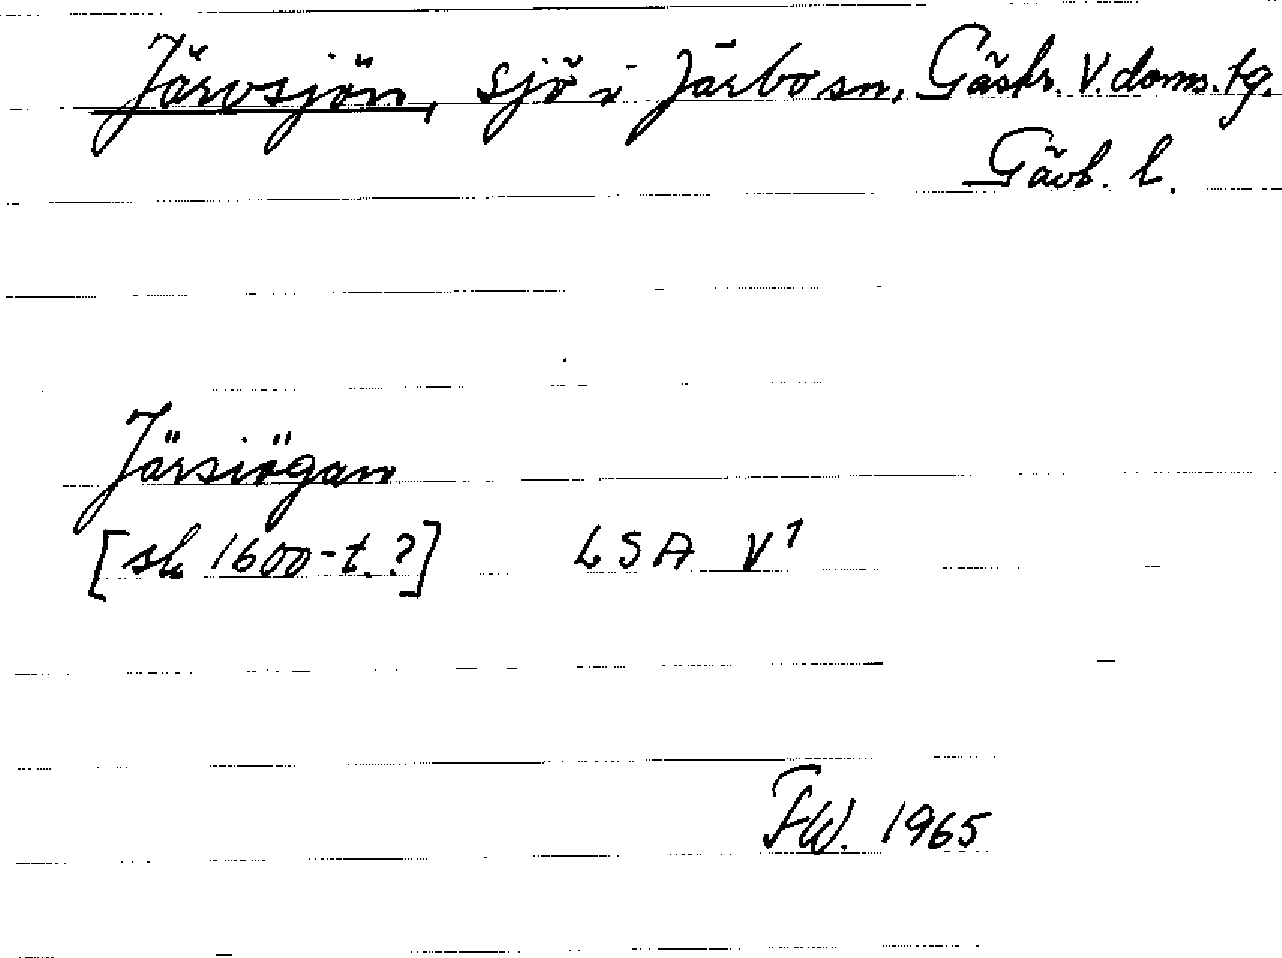 Järvsjön, sjö i Järbo sn, Gästr. V. doms. tg.
Gävl. l.
Järsiögan
[sk 1600-t.?] LSA V1
FW. 1965